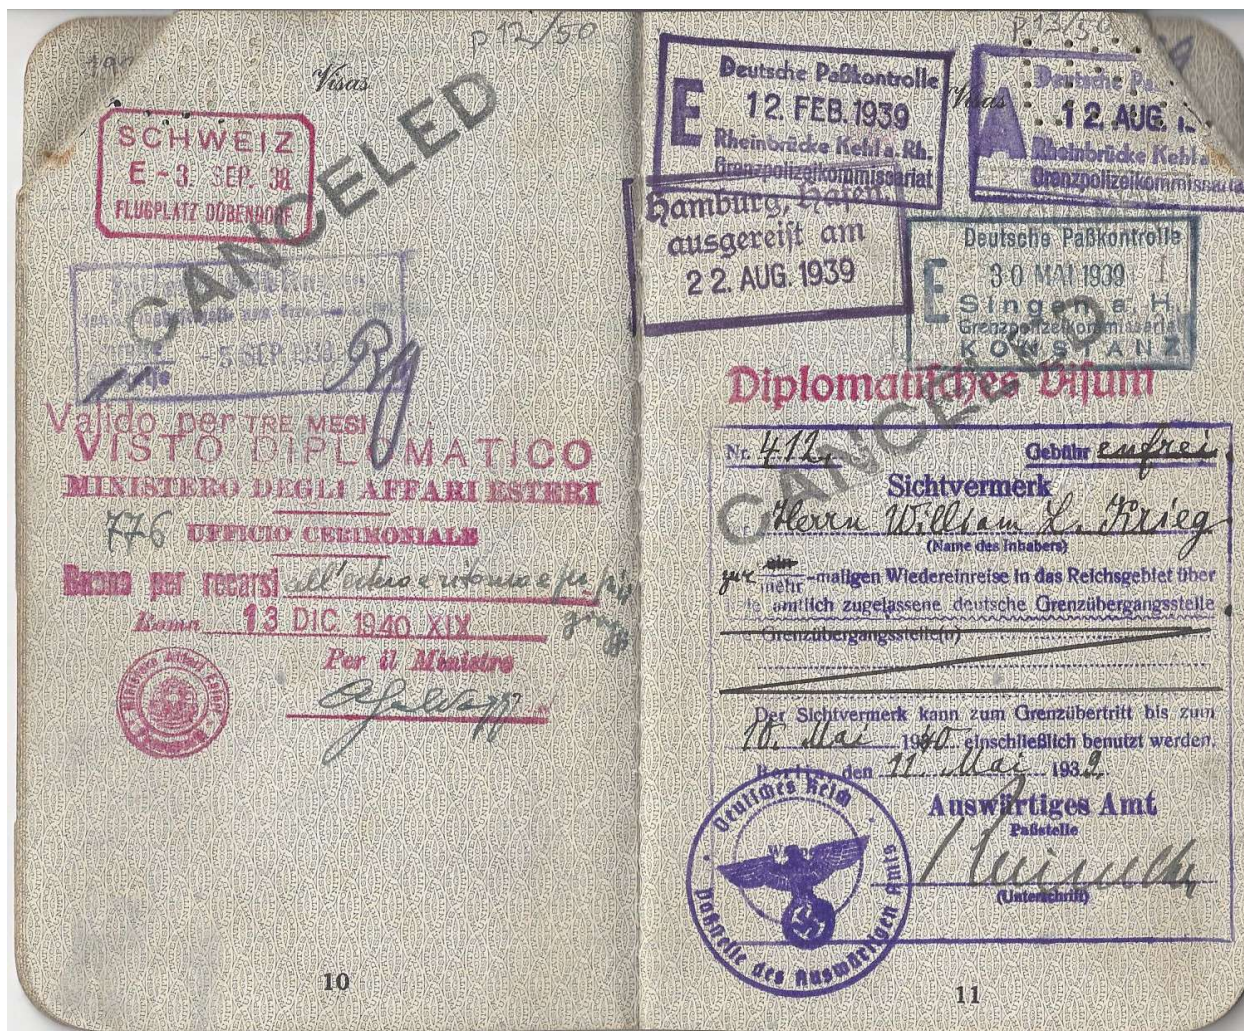 p 12/50
Visas
CANCELED
SCHWEIZ
E - 3. SEP. 38
FLUGPLATZ DÜBENDORF
- 5. SEP. 1938
Valido per TRE MESI
VISTO DIPLOMATICO
MINISTERO DEGLI AFFARI ESTERI
776 UFFICIO CERIMONIALE
Buono per recarsi
Roma 13 DIC 1940 XIX
Per il Ministro
10
p 13/50
Visas
Deutsche Paßkontrolle
E 12. FEB. 1939
Rheinbrücke Kehl a. Rh.
Grenzpolizeikommissariat
Deutsche Pa
A 12. AUG. 1
Rheinbrücke Kehl a
Grenzpolizeikommissaria
Hamburg, Hafen
ausgereist am
22. AUG. 1939
Deutsche Paßkontrolle
E 30 MAI 1939 I
Singen a. H.
Grenzpolizeikommissariat
KONSTANZ
CANCELED
Diplomatisches Visum
Nr. 412. Gebührenfrei.
Sichtvermerk
Herrn William L. Krieg
(Name des Inhabers)
zur ein
mehr -maligen Wiedereinreise in das Reichsgebiet über
jede amtlich zugelassene deutsche Grenzübergangsstelle
Grenzübergangsstelle(n)
Der Sichtvermerk kann zum Grenzübertritt bis zum
10. Mai 1940 einschließlich benutzt werden.
Berlin, den 11. Mai 1939.
Auswärtiges Amt
Paßstelle
(Unterschrift)
Deutsches Reich
Paßstelle des Auswärtigen Amts
11